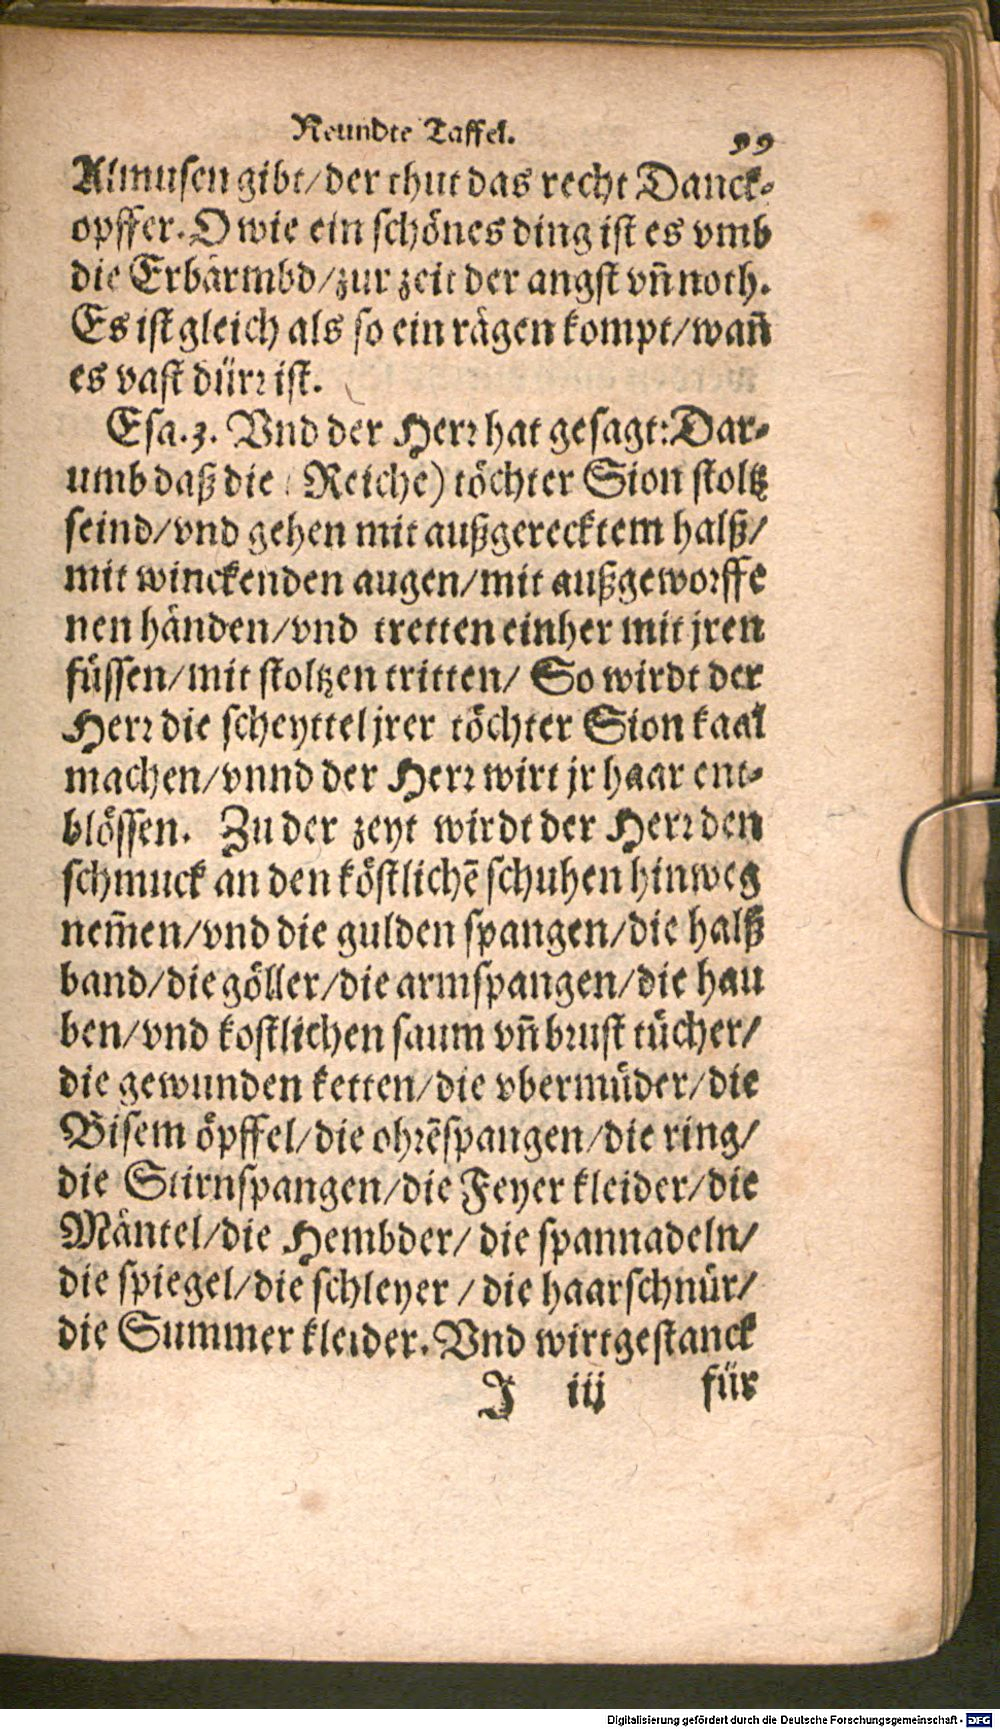 Neundte Taffel. 99
Almusen gibt/der thut das recht Danck-
opffer. O wie ein schönes ding ist es vmb
die Erbärmbd/zur zeit der angst vñ noth.
Es ist gleich als so ein rägen kompt/wañ
es vast dürr ist.
Esa. 3. Vnd der Herr hat gesagt: Dar-
umb daß die (Reiche) töchter Sion stoltz
seind/vnd gehen mit außgerecktem halß/
mit winckenden augen/mit außgeworffe
nen händen/vnd tretten einher mit jren
füssen/mit stoltzen tritten/ So wirdt der
Herr die scheyttel jrer töchter Sion kaal
machen/vnnd der Herr wirt jr haar ent-
blössen. Zu der zeyt wirdt der Herr den
schmuck an den köstlichẽ schuhen hinweg
nem̃en/vnd die gulden spangen/die halß
band/die göller/die armspangen/die hau
ben/vnd kostlichen saum vñ brust tücher/
die gewunden ketten/die vbermüder/die
Bisem öpffel/die ohrẽspangen/die ring/
die Stirnspangen/die Feyer kleider/die
Mäntel/die Hembder/ die spannadeln/
die spiegel/die schleyer / die haarschnür/
die Summer kleider. Vnd wirt gestanck
J iij für
Digitalisierung gefördert durch die Deutsche Forschungsgemeinschaft - DFG